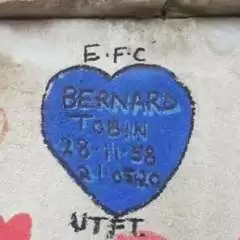 E.F.C
BERNARD
TOBIN
28·11·58
21 03 20
UTFT.